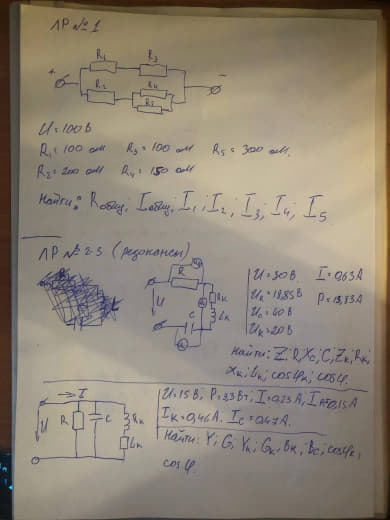 ЛР №1
R1 R3
+ -
R2 R4
R5
U = 100 В
R1 = 100 ом R3 = 100 ом R5 = 300 ом.
R2 = 200 ом R4 = 150 ом
Найти: Rобщ; Iобщ; I1; I2; I3; I4; I5
ЛР № 2-3 (резонансы)
R
U
C
Rк
Lк
U = 30 В I = 0,63 А
Uк = 20 В
Найти: Z; R; Xc; C; Zк; Rк;
Xк; Lк; cosφк; cosφ.
I
U
R
C
Rк
Lк
U = 15 В, P = 3,3 Вт, I = 0.23 А,
Iк = 0,46 А. Ic = 0.47 А.
Найти: Y; G; Yк; Gк; Bк; Bc; cosφк;
cosφ.